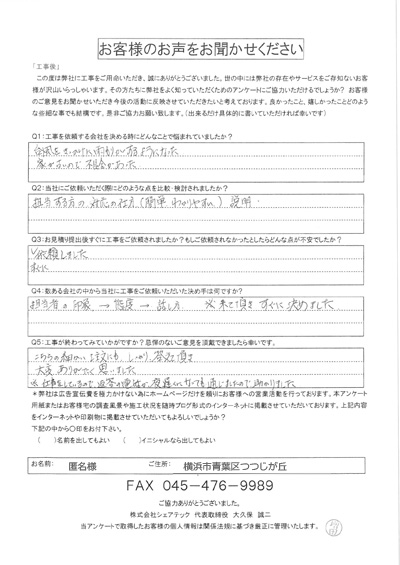 お客様のお声をお聞かせください
「工事後」
この度は弊社に工事をご用命いただき、誠にありがとうございました。世の中には弊社の存在やサービスをご存知ないお客
様が沢山いらっしゃいます。その方たちに弊社をよく知っていただくためのアンケートにご協力いただけるでしょうか? お客
様のご意見をお聞かせいただき今後の活動に反映させていただきたいと考えております。良かったこと、嬉しかったことどのよう
な些細な事でも結構です。是非ご協力お願い致します。(出来るだけ具体的に書いていただければ幸いです)
Q1:工事を依頼する会社を決める時にどんなことで悩まれていましたか?
台風をきっかけに雨もりがするようになった
家が古いので不安があった
Q2:当社にご依頼いただく際にどのような点を比較・検討されましたか?
担当する方の対応の仕方(簡単 わかりやすい) 説明
Q3:お見積り提出後すぐに工事をご依頼されましたか?もしご依頼されなかったとしたらどんな点が不安でしたか?
依頼しました
すぐに
Q4:数ある会社の中から当社に工事をご依頼いただいた決め手は何ですか?
担当者の印象→態度→話し方 ※来て頂きすぐに決めました
Q5:工事が終わってみていかがですか?忌憚のないご意見を頂戴できましたら幸いです。
こちらの細かい注文にもしっかり答えて頂き
大変ありがたく思いました
*弊社は広告宣伝費を極力かけない為にホームページだけを頼りにお客様への営業活動を行っております。本アンケート
用紙またはお客様宅の調査風景や施工状況を随時ブログ形式のインターネットに掲載させていただいております。上記内容
をインターネットや印刷物に掲載させていただいてもよろしいでしょうか?
下記の中から〇印をお付下さい。
( )名前を出してもよい ( )イニシャルなら出してもよい
お名前: 匿名様 ご住所: 横浜市青葉区つつじが丘
FAX 045-476-9989
ご協力ありがとうございました。
株式会社シェアテック 代表取締役 大久保 誠二
当アンケートで取得したお客様の個人情報は関係法規に基づき厳正に管理いたします。